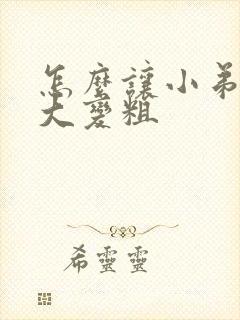 怎麼讓小弟
大變粗
希靈靈